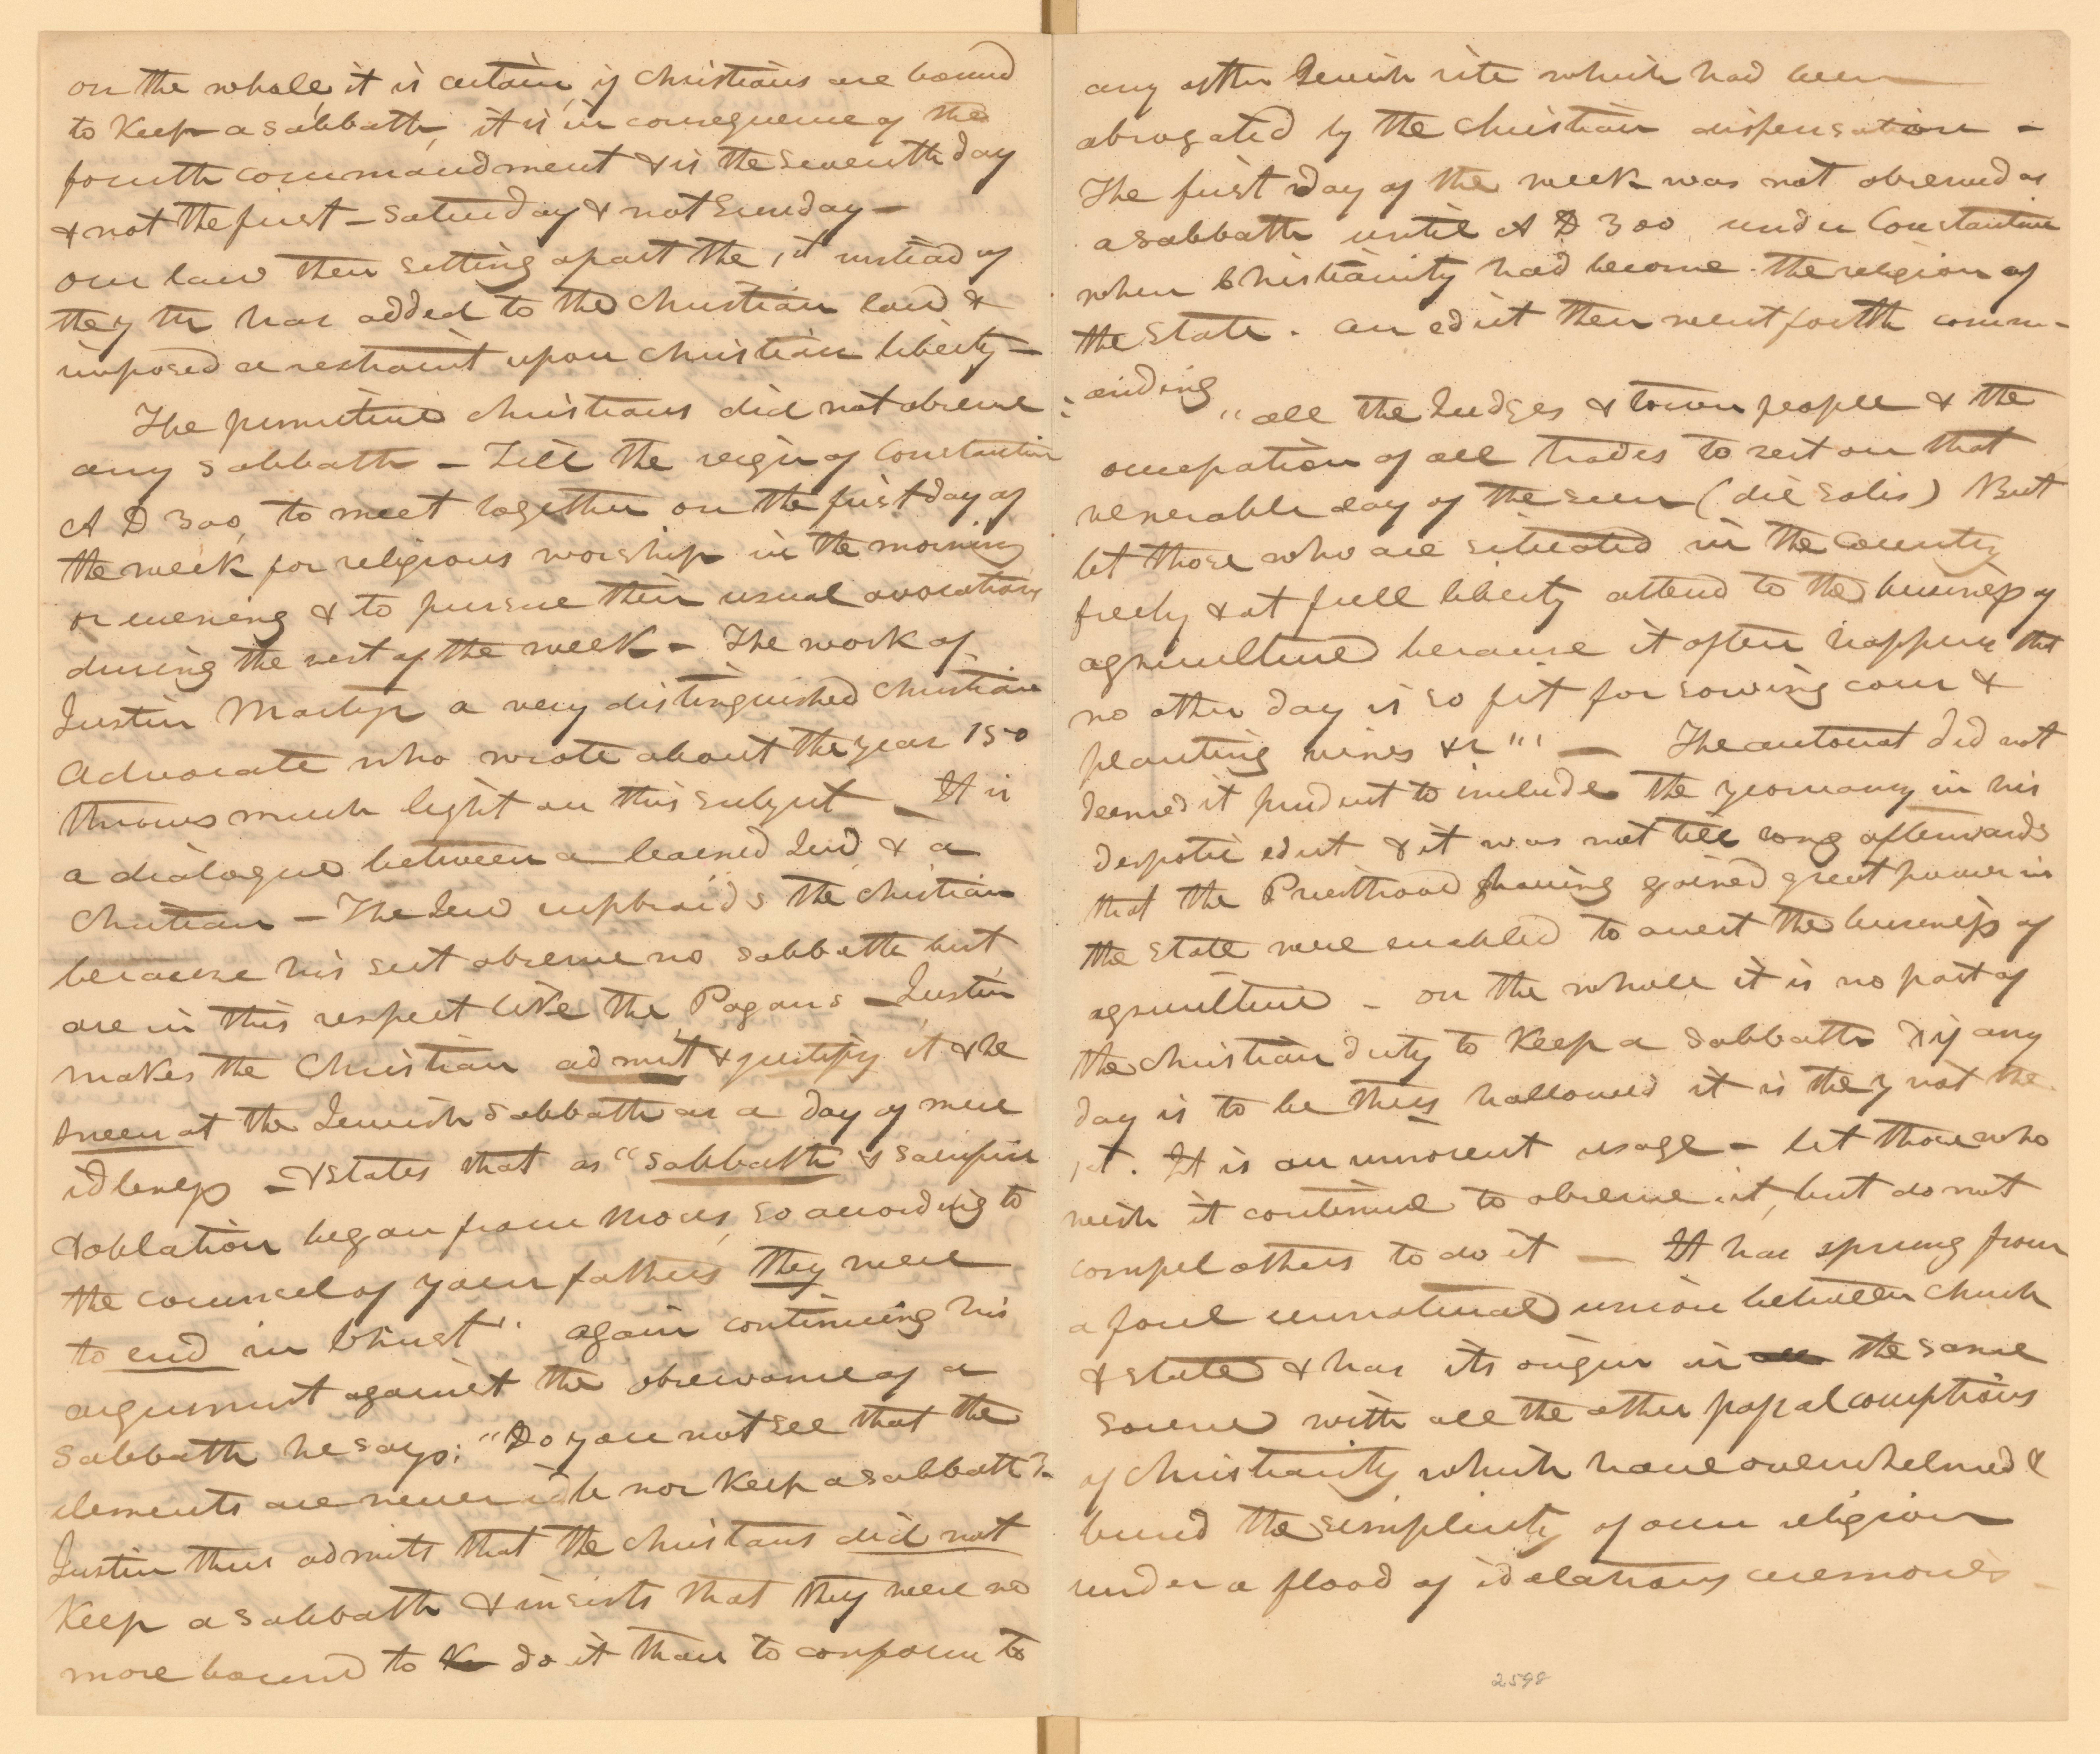 on the whole, it is certain, if christians are bound
to Keep a sabbath, it is in consequence of the
fourth commandment & is the seventh day
& not the first – saturday & not sunday –
our law then setting apart the 1st instead of
the 7 th has added to the christian law &
imposed a restraint upon christian liberty –
The primitive christians did not observe
any sabbath – Till the reign of Constantine
A D 300, to meet together on the first day of
the week for religious worship in the morning
or evening & to pursue their usual avocations
during the rest of the week – The work of
Justin Martyr a very distinguished christian
advocate who wrote about the year 150
throws much light on this subject – It is
a dialogue between a learned Jew & a
Christian – The Jew upbraids the christian
because his sect observe no sabbath but
are in this respect like the Pagans – Justin
makes the Christian admit & justify it & he
sneer at the Jewish sabbath as a day of mere
idleness – & states that as "sabbath & sacrifice
& oblation began from Moses, so according to
the counsel of your fathers they were
to end in Christ" again continuing his
argument against the observance of a
sabbath he says: "Do you not see that the
elements are never idle nor keep a sabbath?"
Justin thus admits that the christians did not
Keep a sabbath & insists that they were no
more bound to K do it than to conform to
any other Jewish rite which had been
abrogated by the christian dispensation –
The first day of the week was not observed as
a sabbath until A D 300 under Constantine
when Christianity had become the religion of
the state. an edict then went forth comm-
-anding "all the Judges & town people & the
occupation of all trades to rest on that
venerable day of the sun (die solis) But
let those who are situated in the country
freely & at full liberty attend to the business of
agriculture because it often happens that
no other day is so fit for sowing corn &
planting vines &c"" – The autocrat did not
deemed it prudent to include the yeomanry in his
despotic edict & it was not till long afterwards
that the Priesthood having gained great power in
the state were enabled to arrest the business of
agriculture – on the whole it is no part of
the christian duty to Keep a sabbath & if any
day is to be thus hallowed it is the 7 not the
1st. It is an innocent usage – let those who
wish it continue to observe it, but do not
compel others to do it – It has sprung from
a foul unnatural union between church
& state & has its origin in all the same
source with all the other papal corruptions
of christianity which have overwhelmed &
buried the simplicity of our religion
under a flood of idolatrous ceremonies –
2598